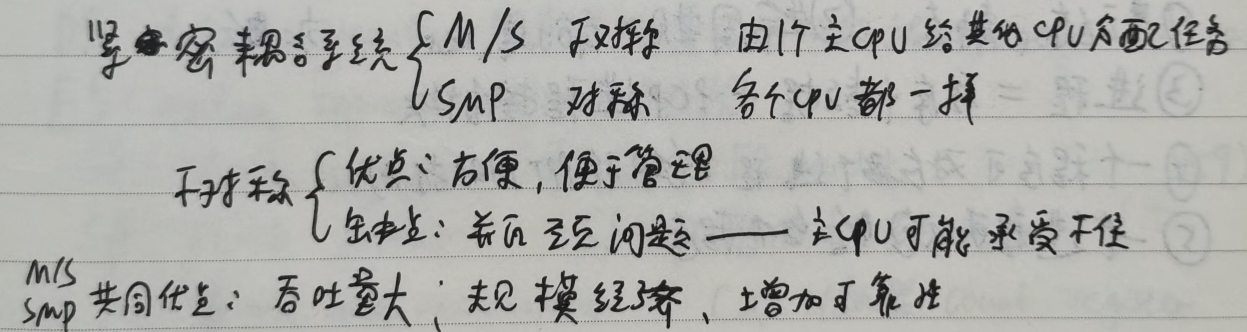 紧密耦合系统 { M/S 不对称 由1个主CPU给其他CPU分配任务
SMP 对称 各个CPU都一样
不对称 { 优点：方便，便于管理
缺点：瓶颈问题 —— 主CPU可能承受不住
M/S
SMP 共同优点：吞吐量大；规模经济、增加可靠性